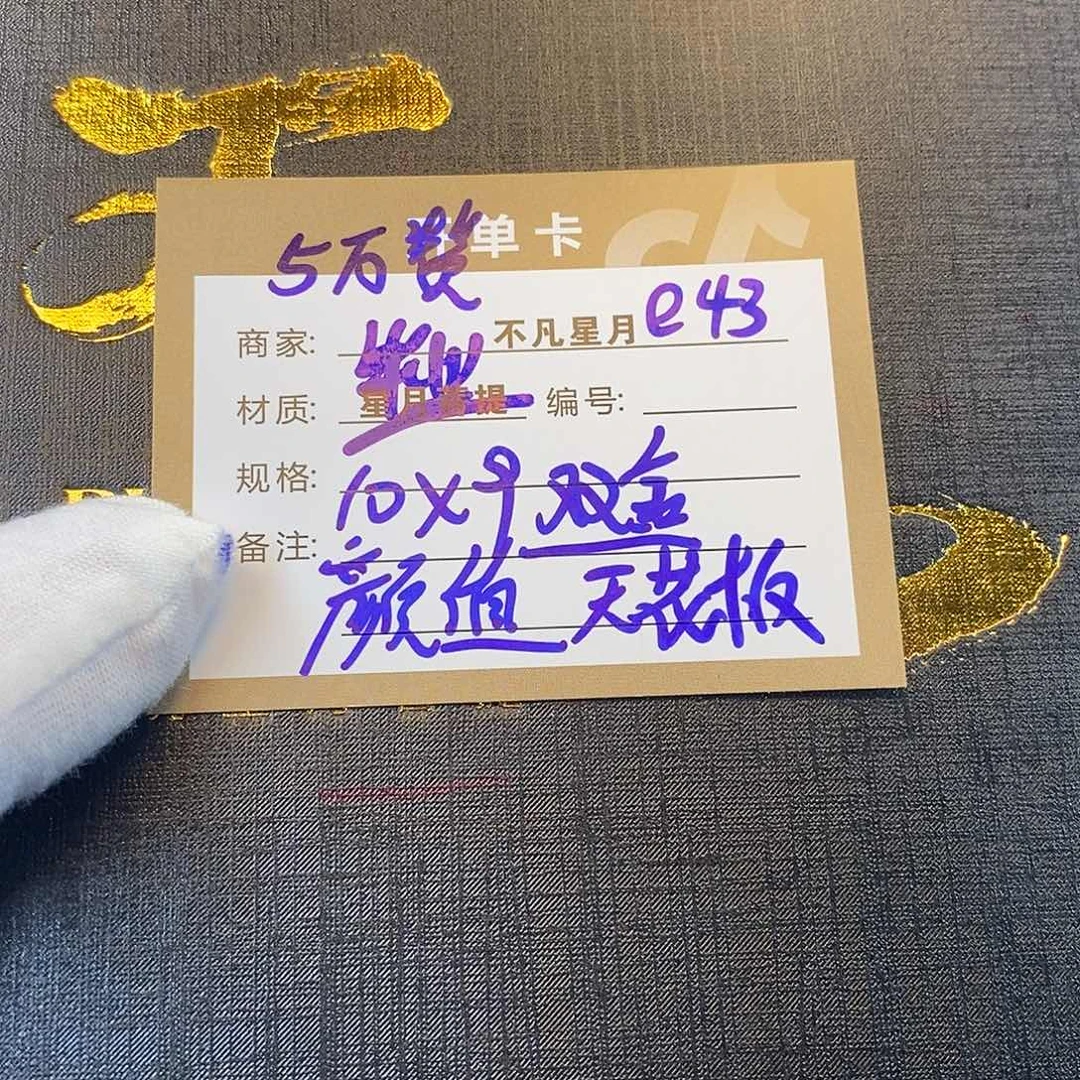 单卡
5万赞
商家: 不凡星月 e43
材质: 星月菩提 编号:
规格: 10X9 双金
备注:
颜值 天花板